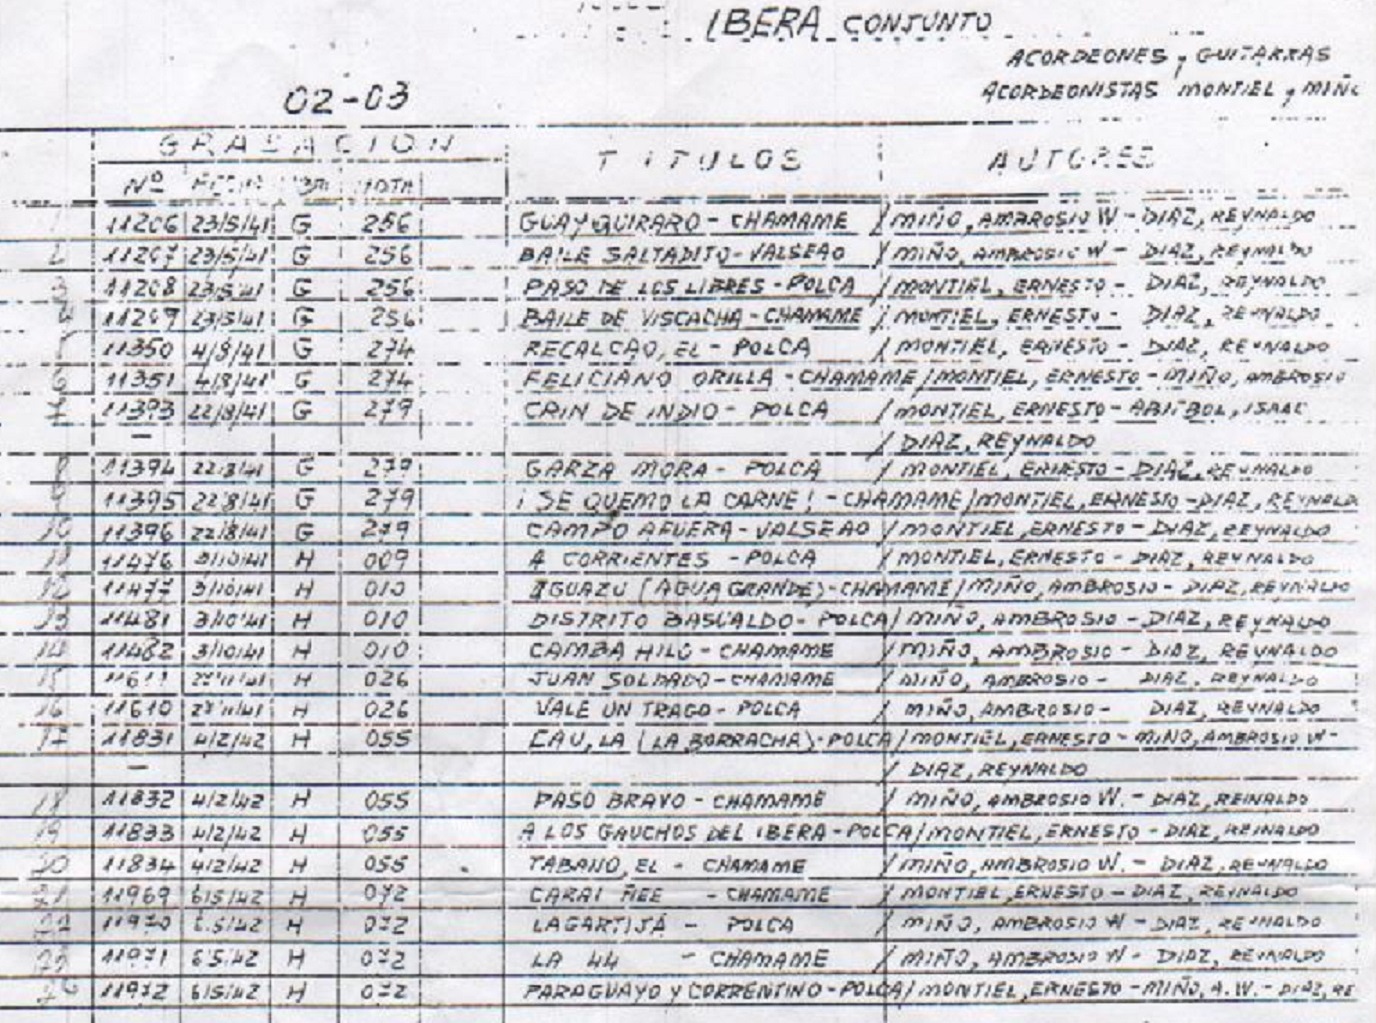 IBERA CONJUNTO
ACORDEONES y GUITARRAS
ACORDEONISTAS MONTIEL y MIÑO
02-03
GRABACION TITULOS AUTORES
Nº FECHA
1 11206 23/5/41 G 256 GUAYQUIRARO - CHAMAME / MIÑO, AMBROSIO W - DIAZ, REYNALDO
2 11207 23/5/41 G 256 BAILE SALTADITO - VALSEAO / MIÑO, AMBROSIO W - DIAZ, REYNALDO
3 11208 23/5/41 G 256 PASO DE LOS LIBRES - POLCA / MONTIEL, ERNESTO - DIAZ, REYNALDO
4 11209 23/5/41 G 256 BAILE DE VISCACHA - CHAMAME / MONTIEL, ERNESTO - DIAZ, REYNALDO
11350 4/8/41 G 274 RECALCAO, EL - POLCA / MONTIEL, ERNESTO - DIAZ, REYNALDO
6 11351 4/8/41 G 274 FELICIANO ORILLA - CHAMAME / MONTIEL, ERNESTO - MIÑO, AMBROSIO
7 11393 22/8/41 G 279 CRIN DE INDIO - POLCA / MONTIEL, ERNESTO - ABITBOL, ISAAC
— / DIAZ, REYNALDO
8 11394 22/8/41 G 279 GARZA MORA - POLCA / MONTIEL, ERNESTO - DIAZ, REYNALDO
9 11395 22/8/41 G 279 ¡ SE QUEMO LA CARNE ! - CHAMAME / MONTIEL, ERNESTO - DIAZ, REYNALD
10 11396 22/8/41 G 279 CAMPO AFUERA - VALSEAO / MONTIEL, ERNESTO - DIAZ, REYNALDO
11 11476 3/10/41 H 009 A CORRIENTES - POLCA / MONTIEL, ERNESTO - DIAZ, REYNALDO
12 11477 3/10/41 H 010 IGUAZU (AGUA GRANDE) - CHAMAME / MIÑO, AMBROSIO - DIAZ, REYNALDO
13 11481 3/10/41 H 010 DISTRITO BASUALDO - POLCA / MIÑO, AMBROSIO - DIAZ, REYNALDO
14 11482 3/10/41 H 010 CAMBA HILO - CHAMAME / MIÑO, AMBROSIO - DIAZ, REYNALDO
15 11611 H 026 JUAN SOLDADO - CHAMAME / MIÑO, AMBROSIO - DIAZ, REYNALDO
16 11610 H 026 VALE UN TRAGO - POLCA / MIÑO, AMBROSIO - DIAZ, REYNALDO
17 11831 4/2/42 H 055 CAU, LA (LA BORRACHA) - POLCA / MONTIEL, ERNESTO - MIÑO, AMBROSIO W -
— / DIAZ, REYNALDO
18 11832 4/2/42 H 055 PASO BRAVO - CHAMAME / MIÑO, AMBROSIO W. - DIAZ, REINALDO
19 11833 4/2/42 H 055 A LOS GAUCHOS DEL IBERA - POLCA / MONTIEL, ERNESTO - DIAZ, REINALDO
20 11834 4/2/42 H 055 TABANO, EL - CHAMAME / MIÑO, AMBROSIO W. - DIAZ, REYNALDO
21 11969 6/5/42 H 072 CARAI ÑEE - CHAMAME / MONTIEL, ERNESTO - DIAZ, REINALDO
22 11970 6/5/42 H 072 LAGARTIJA - POLCA / MIÑO, AMBROSIO W - DIAZ, REYNALDO
23 11971 6/5/42 H 072 LA 44 - CHAMAME / MIÑO, AMBROSIO W - DIAZ, REYNALDO
11972 6/5/42 H 072 PARAGUAYO Y CORRENTINO - POLCA / MONTIEL, ERNESTO - MIÑO, A.W. - DIAZ, RE